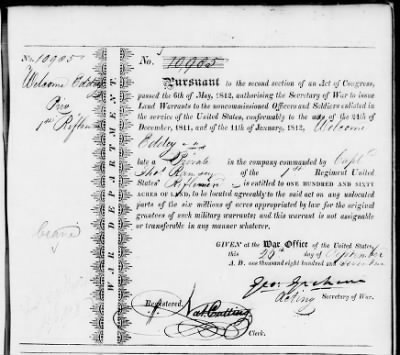 No. 10905
Welcome Eddy
Priv
1st Riflemen
WAR DEPARTMENT
No. 10905
Pursuant to the second section of an Act of Congress,
passed the 6th of May, 1812, authorising the Secretary of War to issue
Land Warrants to the noncommissioned Officers and Soldiers enlisted in
the service of the United States, conformably to the acts of the 24th of
December, 1811, and of the 11th of January, 1812, Welcome
Eddy
late a Private in the company commanded by Captn
Thos Ramsey of the 1st Regiment United
States' Riflemen is entitled to ONE HUNDRED AND SIXTY
ACRES OF LAND, to be located agreeably to the said act on any unlocated
parts of the six millions of acres appropriated by law for the original
grantees of such military warrants; and this warrant is not assignable
or transferable in any manner whatever.
GIVEN at the War Office of the United States,
this 26th day of September
A. D. one thousand eight hundred and
Geo. Graham
Acting Secretary of War.
Registered
Nat. Cutting
Clerk.